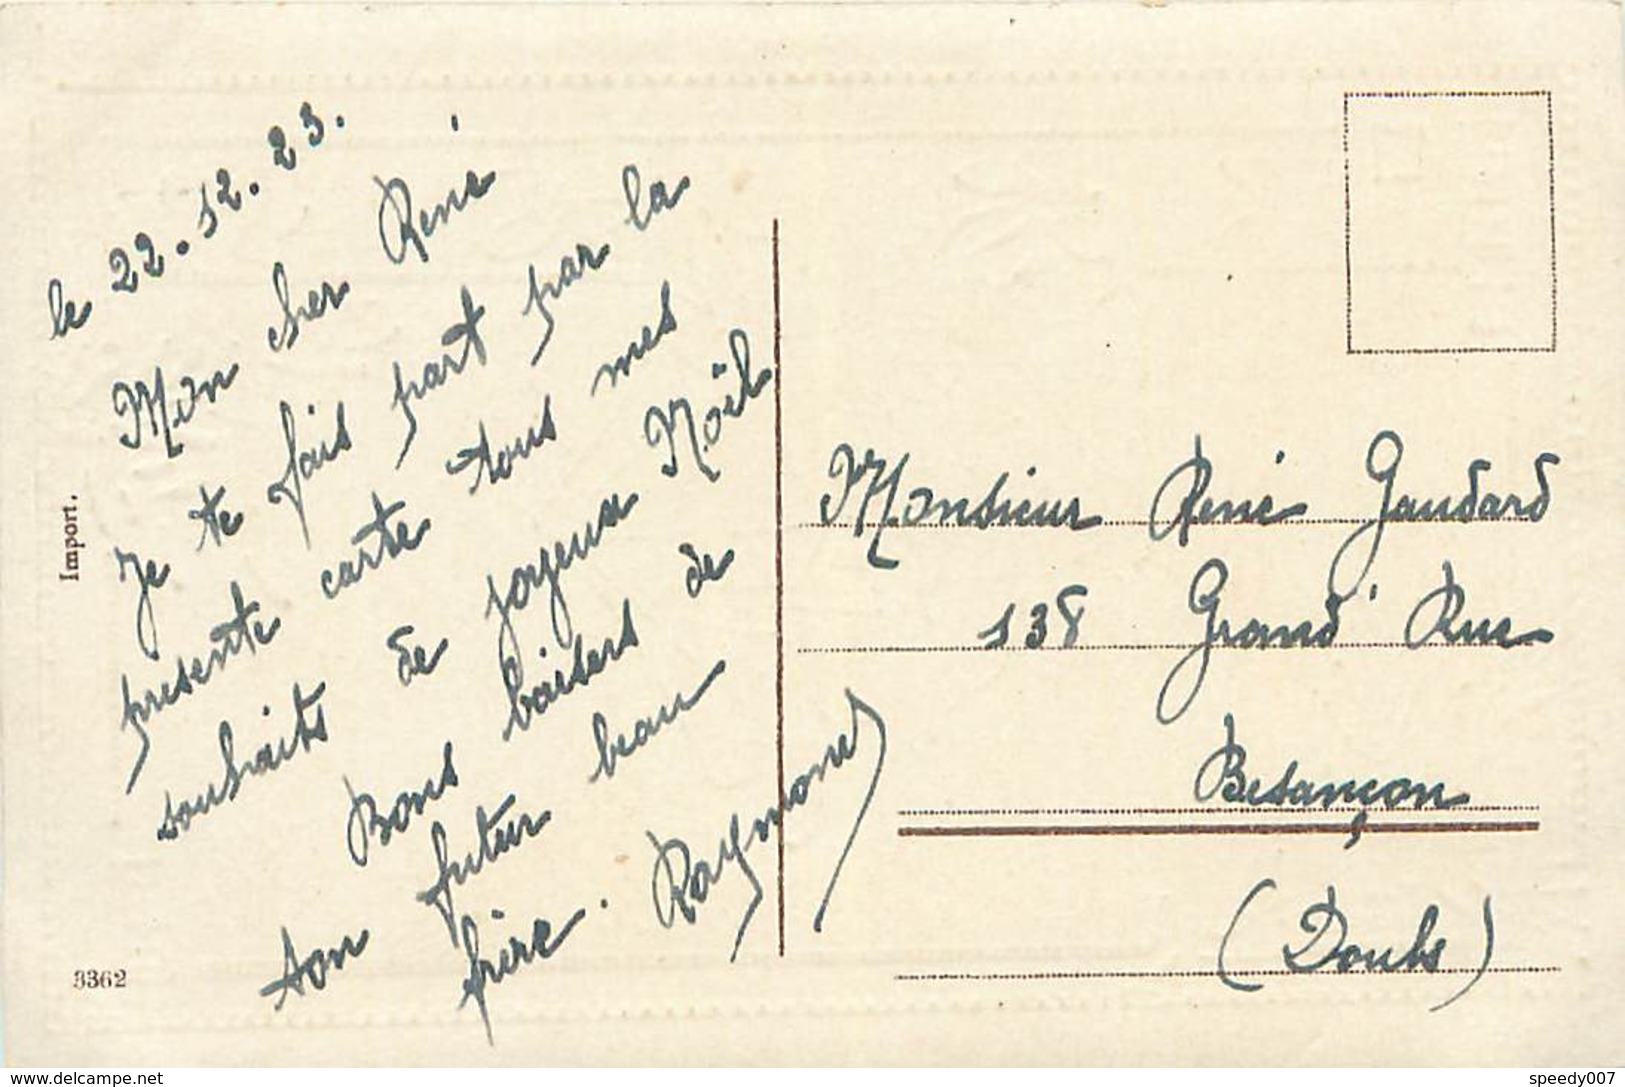 le 22.12.23.
Mon cher René
Je te fais part par la
présente carte tous mes
souhaits de joyeux Noël
Bons baisers de
ton futur beau
frère. Raymond
Monsieur René Gaudard
138 Grand' Rue
Besançon
(Doubs)
Import.
3362
www.delcampe.net
speedy007